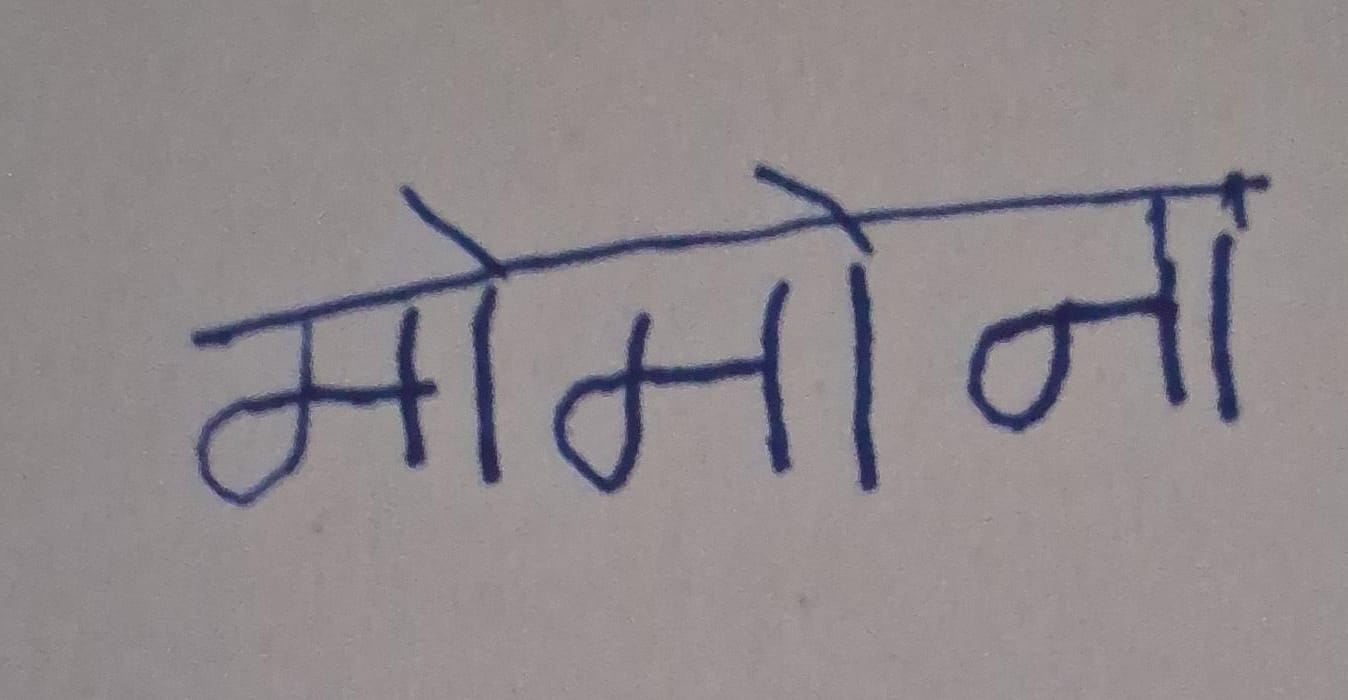 मोमोना